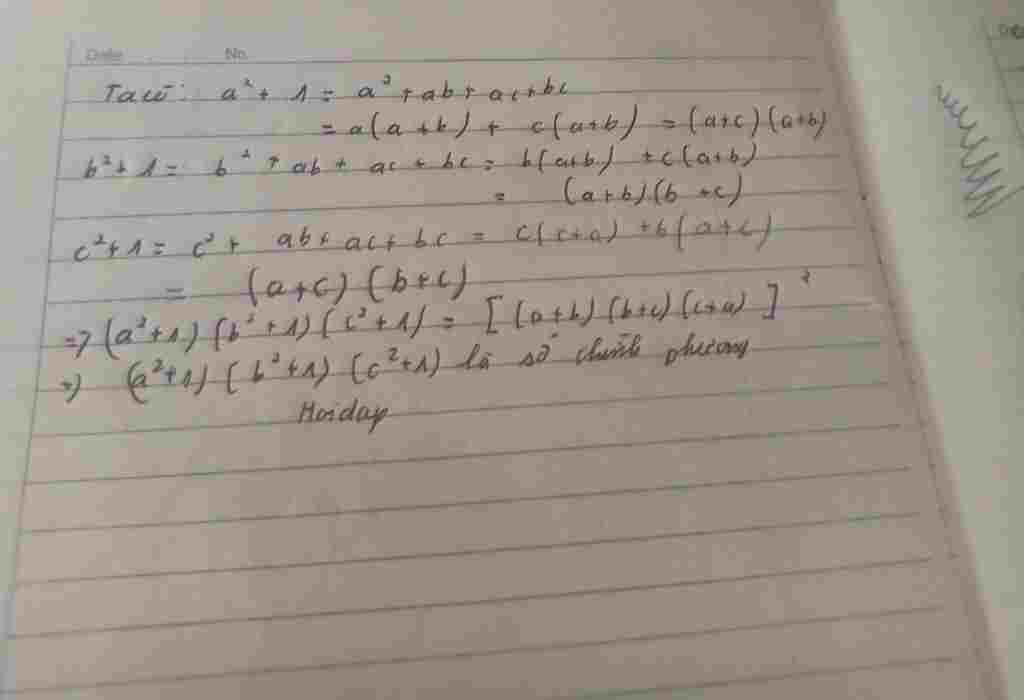 Date No.
Ta có: a² + 1 = a² + ab + ac + bc
= a(a + b) + c(a+b) = (a+c)(a+b)
b² + 1 = b² + ab + ac + bc = b(a+b) + c(a+b)
= (a+b)(b+c)
c² + 1 = c² + ab + ac + bc = c(c+a) + b(a+c)
= (a+c)(b+c)
=> (a²+1)(b²+1)(c²+1) = [(a+b)(b+c)(c+a)]²
=> (a²+1)(b²+1)(c²+1) là số chính phương
Hoidap